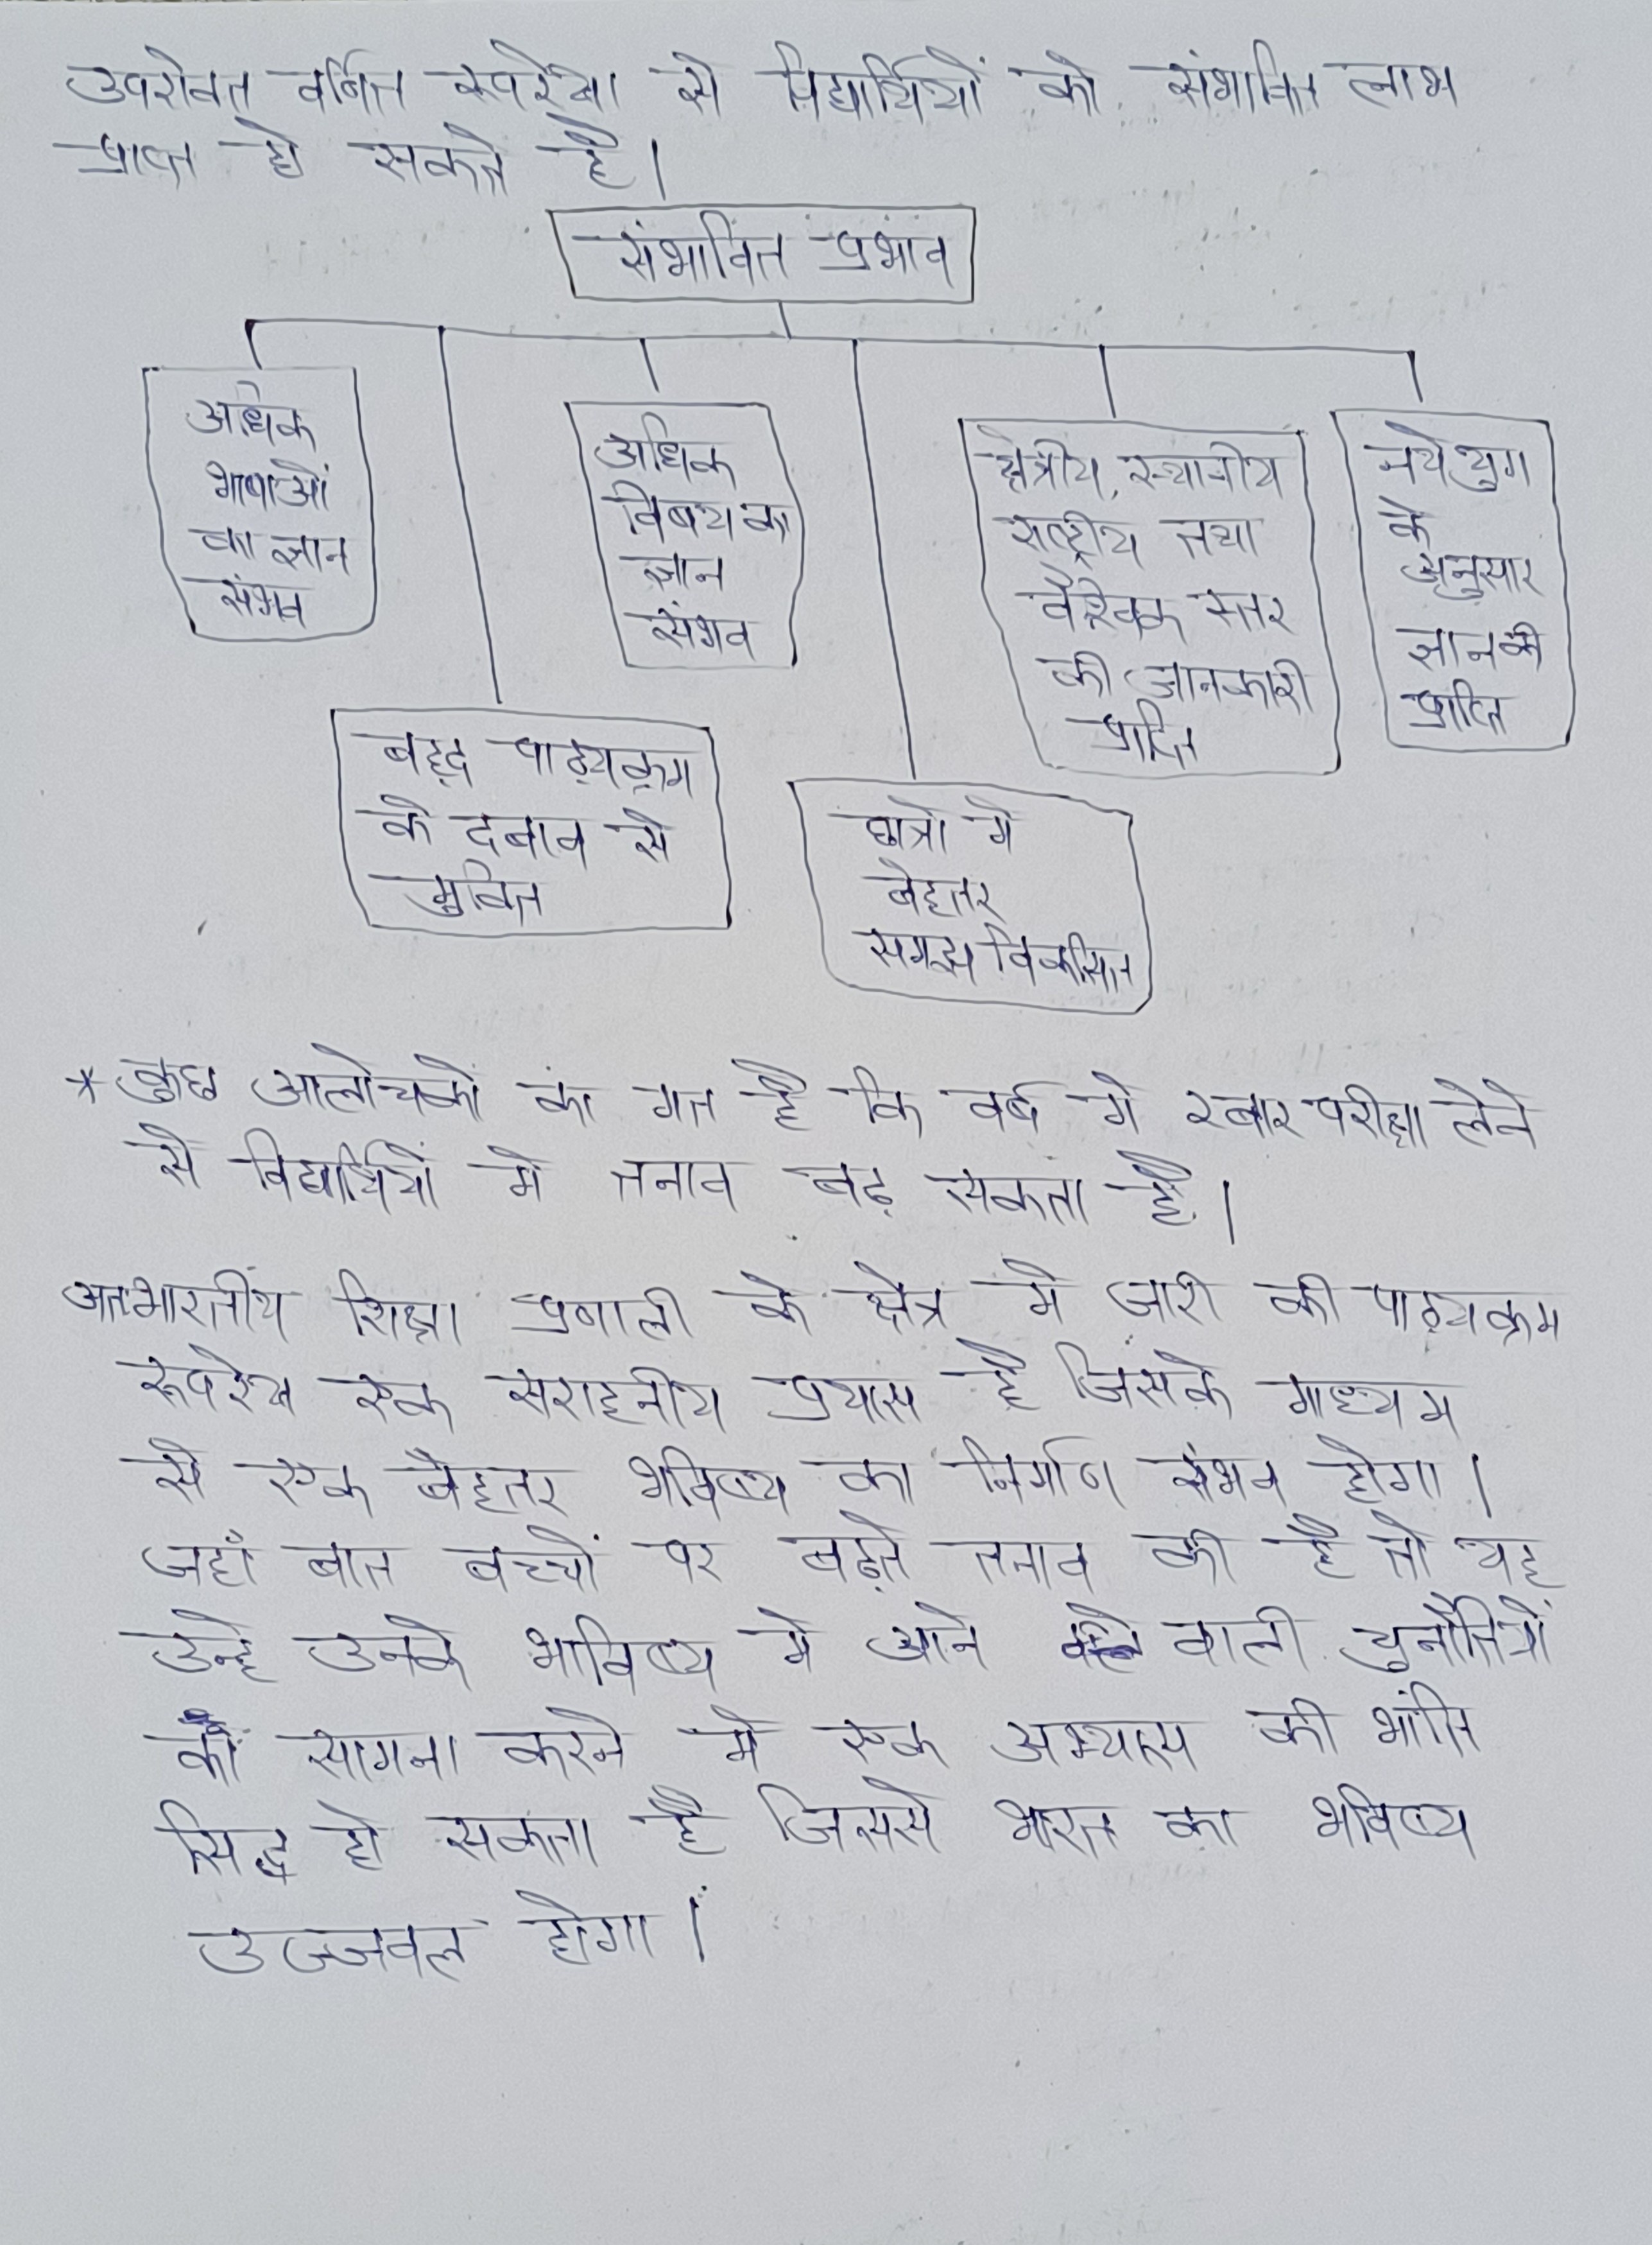 उपरोक्त वर्णित रूपरेखा से विद्यार्थियों को संभावित लाभ
प्राप्त हो सकते है।
संभावित प्रभाव
अधिक
भाषाओं
का ज्ञान
संभव
अधिक
विषय का
ज्ञान
संभव
क्षेत्रीय, स्थानीय
राष्ट्रीय तथा
वैश्विक स्तर
की जानकारी
प्राप्ति
नये युग
के
अनुसार
ज्ञान की
प्राप्ति
वृहद पाठ्यक्रम
के दबाव से
मुक्ति
छात्रों मे
बेहतर
समझ विकसित
* कुछ आलोचकों का मत है कि वर्ष मे २ बार परीक्षा लेने
से विद्यार्थियों मे तनाव बढ़ सकता है।
अतः भारतीय शिक्षा प्रणाली के क्षेत्र मे जारी की पाठ्यक्रम
रूपरेखा एक सराहनीय प्रयास है जिसके माध्यम
से एक बेहतर भविष्य का निर्माण संभव होगा।
जहाँ बात बच्चों पर बढ़ते तनाव की है तो यह
उन्हे उनके भाविष्य मे आने वाली चुनौतियों
का सामना करने मे एक अभ्यास की भांति
सिद्ध हो सकता है जिससे भारत का भविष्य
उज्जवल होगा।